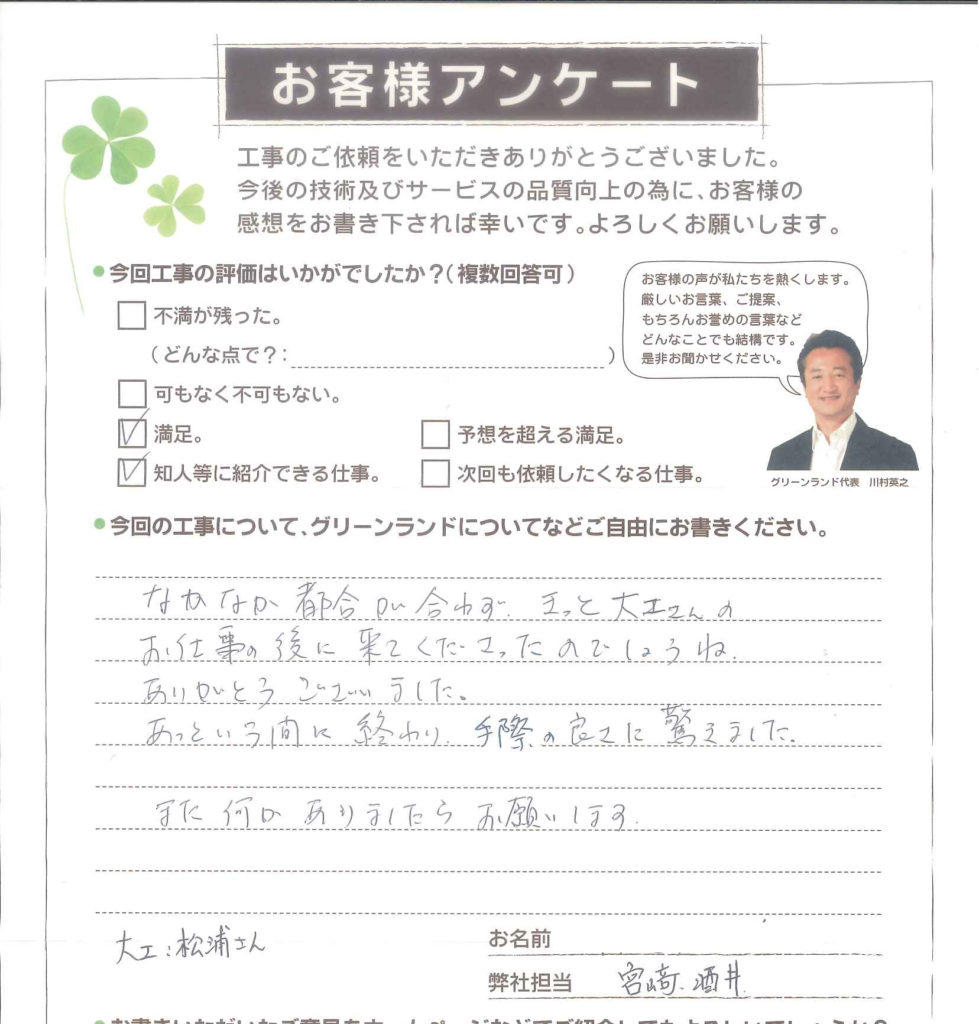 お客様アンケート
工事のご依頼をいただきありがとうございました。
今後の技術及びサービスの品質向上の為に、お客様の
感想をお書き下されば幸いです。よろしくお願いします。
●今回工事の評価はいかがでしたか?(複数回答可)
不満が残った。
(どんな点で?: )
可もなく不可もない。
満足。
予想を超える満足。
知人等に紹介できる仕事。
次回も依頼したくなる仕事。
お客様の声が私たちを熱くします。
厳しいお言葉、ご提案、
もちろんお誉めの言葉など
どんなことでも結構です。
是非お聞かせください。
グリーンランド代表 川村英之
●今回の工事について、グリーンランドについてなどご自由にお書きください。
なかなか都合が合わず、きっと大工さんの
お仕事の後に来てくださったのでしょうね。
ありがとうございました。
あっという間に終わり、手際の良さに驚きました。
また何かありましたらお願いします。
大工:松浦さん
お名前
弊社担当 宮崎、酒井
●お書きいただいたご意見をホームページなどでご紹介してもよろしいでしょうか?